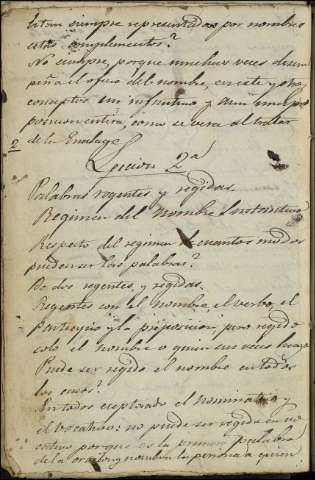 Estan siempre representados por nombres
estos complementos?
No siempre, porque muchas veces desem
peña el oficio del nombre, en este y otros
conceptos un infinitivo y aun una pro
posicion entera, como se vera al tratar
de la Enalage
2
Leccion 2ª
Palabras regentes y regidas.
Regimen del Nombre Sustantivo
Respecto del regimen de cuantos modos
pueden ser las palabras?
De dos regentes, y regidas.
Regentes son el Nombre, el verbo, el
Participio y la preposicion; pero regido
solo el nombre o quien sus veces haga
Puede ser regido el nombre en todos
los casos?
En todos exceptuado el nominativo y
el vocativo: no puede ser regido en
porque es la primera palabra
de la oracion y nombra la persona a quien